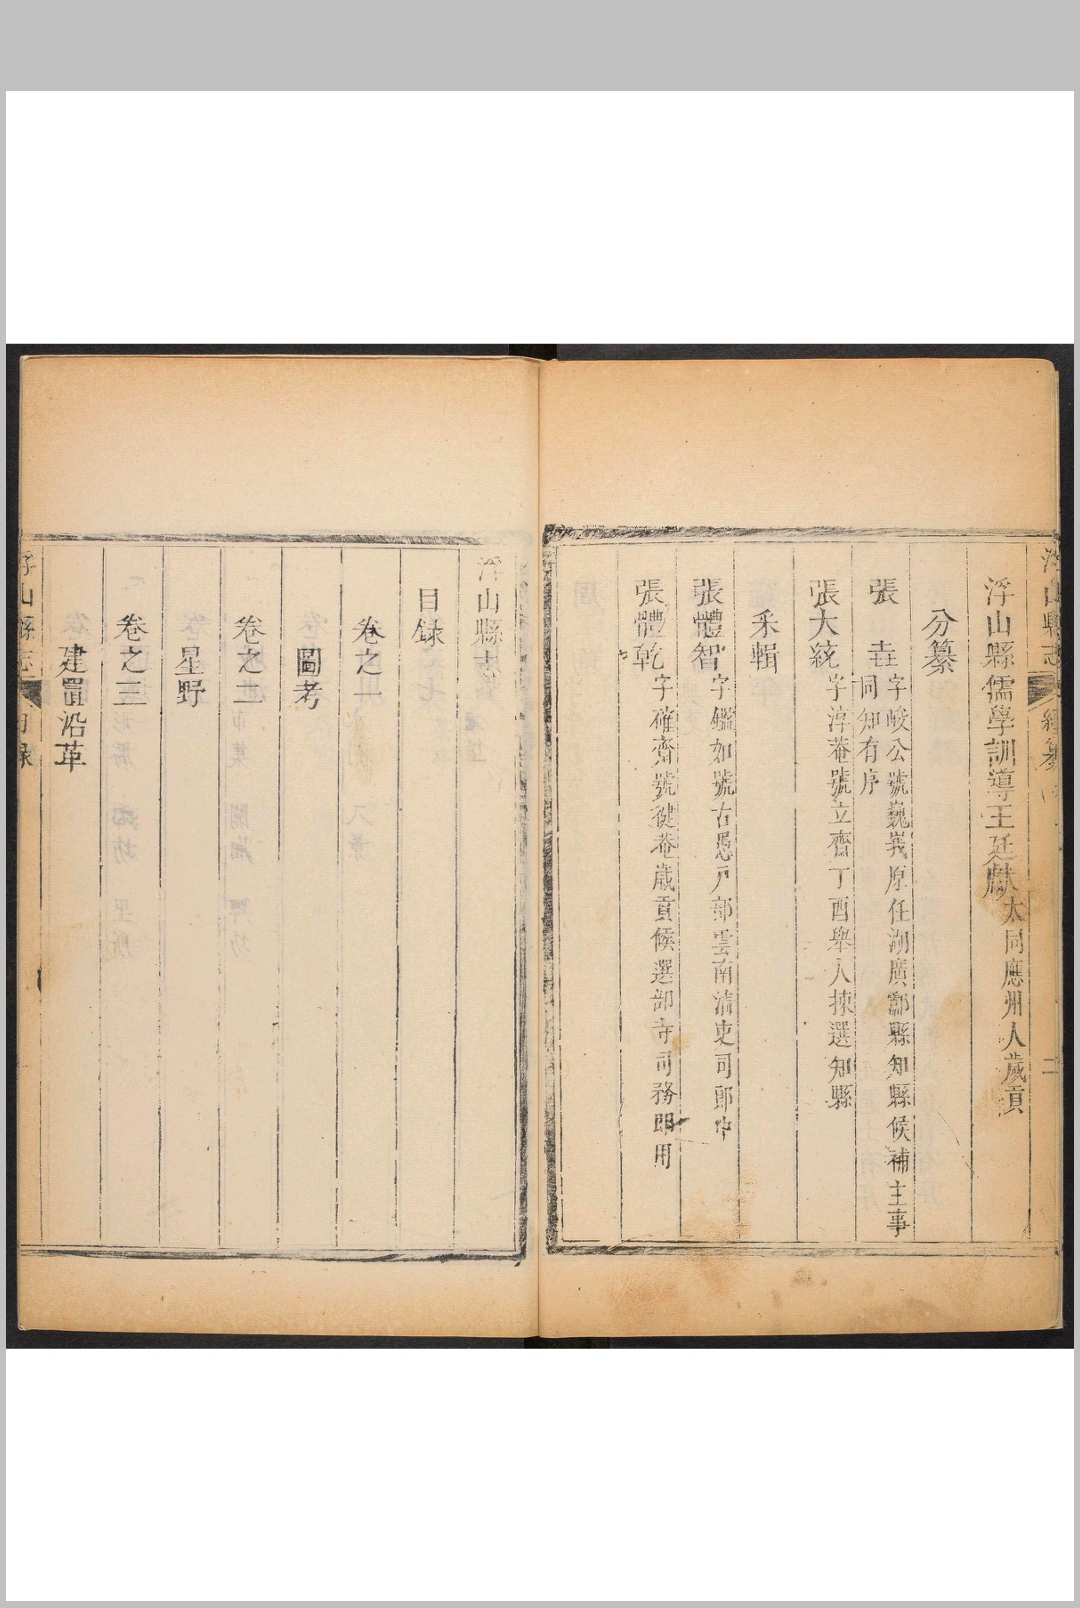 浮山縣志 纂 二
浮山縣儒學訓導王廷獻大同應州人歲貢
分纂
張 壵字峻公號巍峩原任湖廣酃縣知縣候補主事
同知有序
張大統字淳菴號立齋丁酉舉人揀選知縣
釆輯
張體智字鑑如號古愚戶部雲南清吏司郎中
張體乾字確齋號健菴歲貢候選部寺司務即用
浮山縣志
目録
卷之一
圖考
卷之二
星野
卷之三
建置沿革
浮山縣志 目録